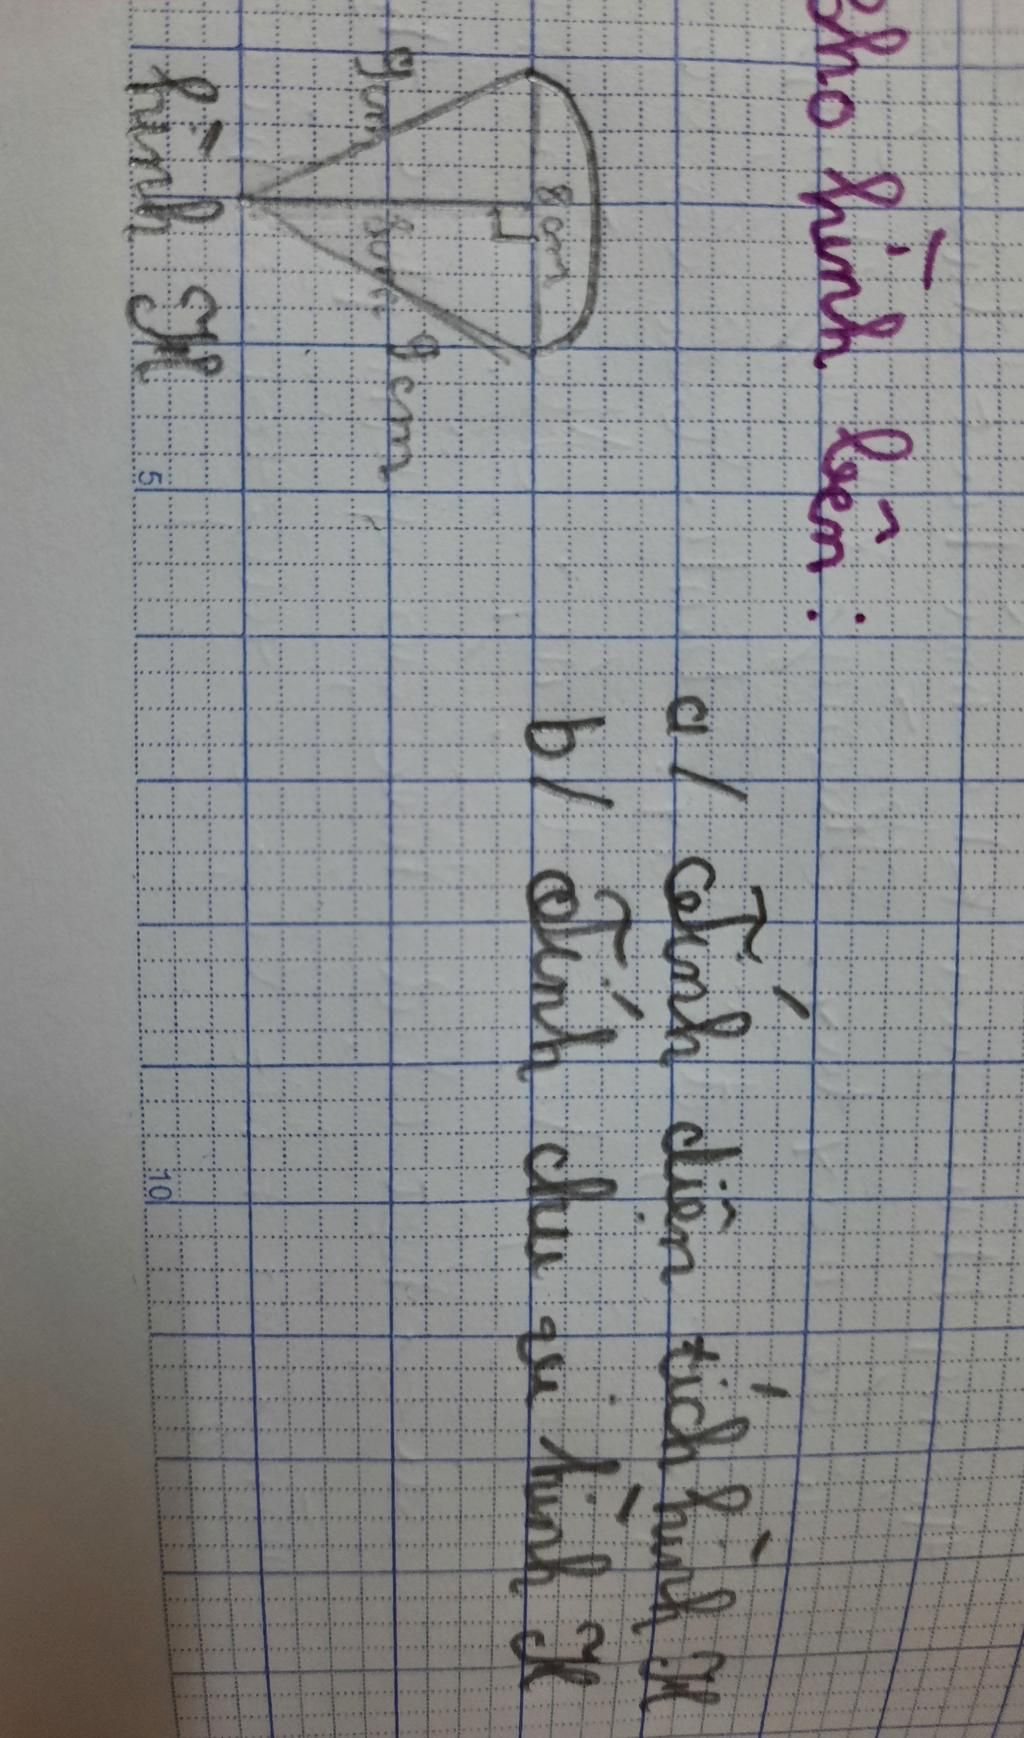 Cho hình bên :
a/ Tính diện tích hình H
b/ Tính chu vi hình H
8 cm
9cm
9 cm
hình H
5
10